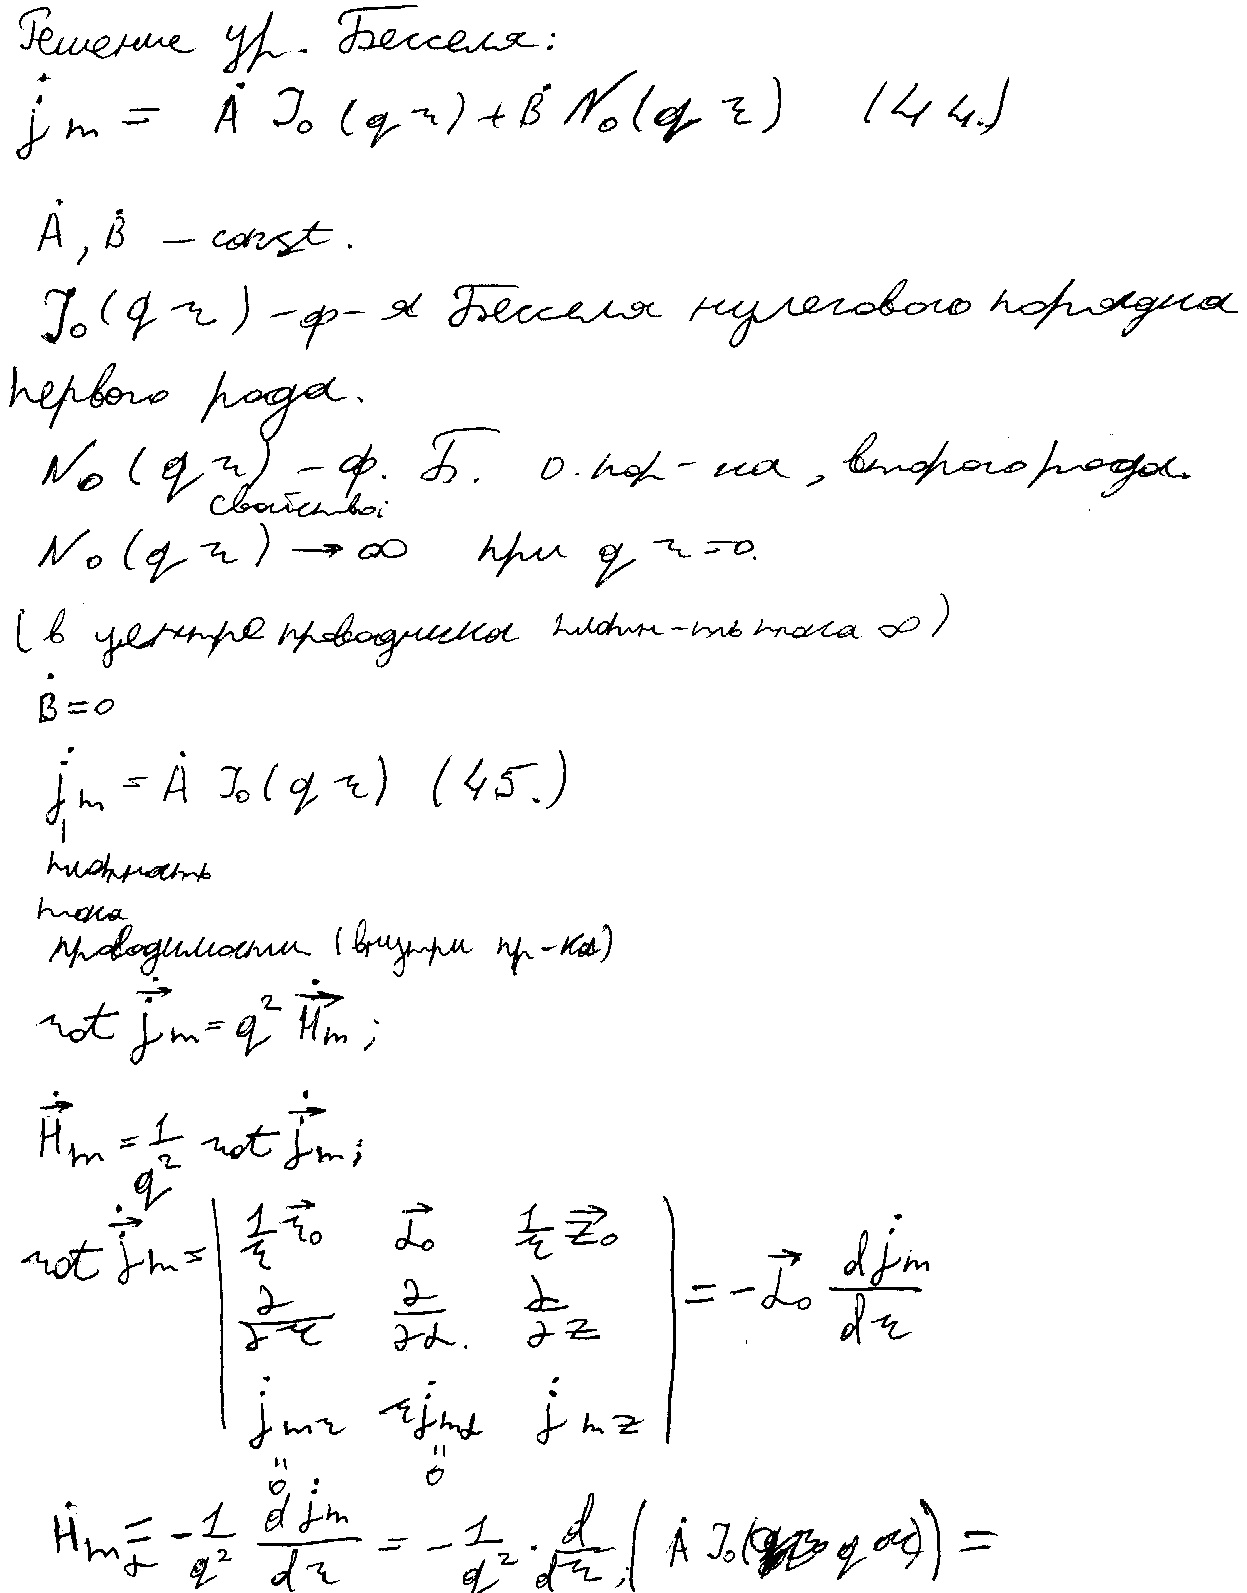 Решение ур. Бесселя:
j̇m = Ȧ J₀(qr) + Ḃ N₀(qr) (44.)
Ȧ, Ḃ – const.
J₀(qr) – ф-я Бесселя нулегового порядка
первого рода.
N₀(qr) – ф. Б. 0. пор-ка, второго рода.
свойство:
N₀(qr) → ∞ при qr=0.
(в центре проводника плотн-ть тока ∞)
Ḃ=0
j̇m = Ȧ J₀(qr) (45.)
плотность
тока
проводимости (внутри пр-ка)
rot j̇⃗m = q² Ḣ⃗m;
Ḣ⃗m = 1/q² rot j̇⃗m;
rot j̇⃗m = | 1/r r⃗₀ α⃗₀ 1/r z⃗₀ |
| ∂/∂r ∂/∂α. ∂/∂z | = -α⃗₀ dj̇m/dr
| j̇mr rj̇mα j̇mz |
=0 =0
Ḣmα = -1/q² dj̇m/dr = -1/q² · d/dr (Ȧ J₀(qr)) =